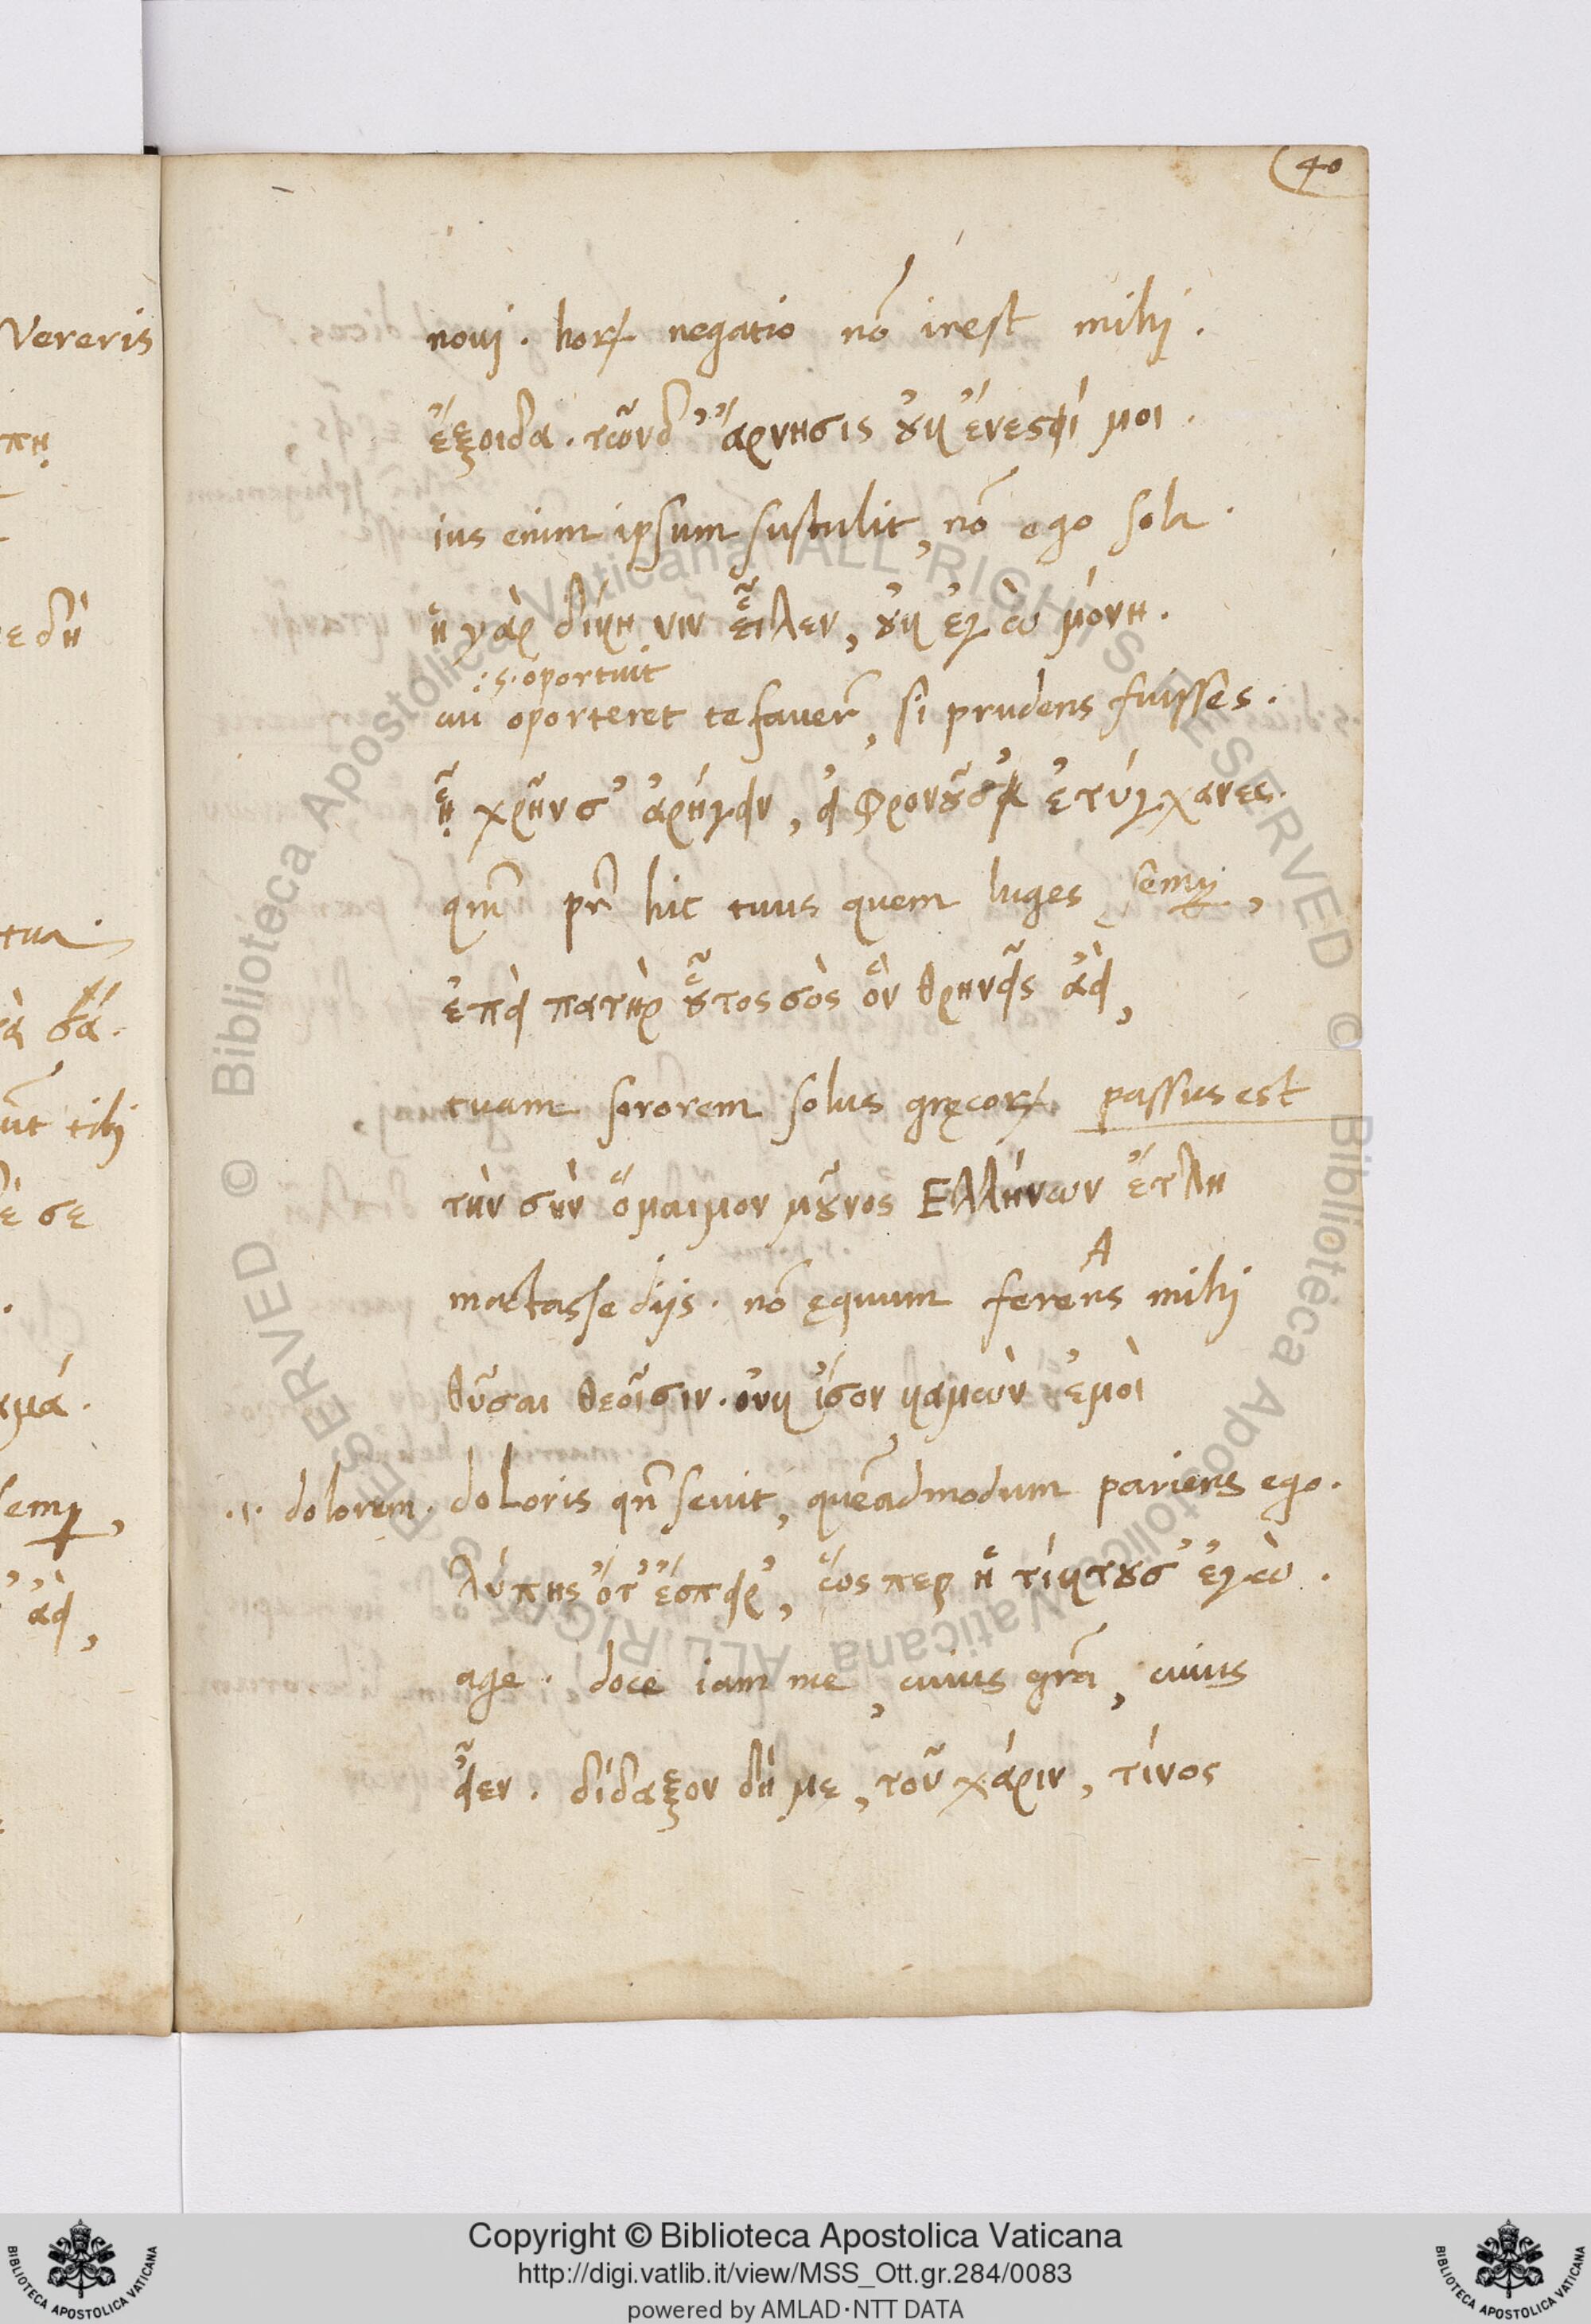 40
noui . horꝝ negatio nõ inest mihi .
ἔξοιδα . τῶνδ’ ἄρνησις οὐκ ἔνεστί μοι .
ius enim ipsum sustulit, nõ ego sola .
ἡ γὰρ δίκη νιν εἷλεν, οὐκ ἐγὼ μόνη .
: s . oportuit
cui oporteret te fauer̃, si prudens fuisses .
ᾗ χρῆν σ’ ἀρήγειν, εἰ φρονοῦσ’ ἐτύγχανες .
qm̃ pr̃ hic tuus quem luges semꝑ,
ἐπεὶ πατὴρ οὗτος σὸς ὃν θρηνεῖς ἀεὶ,
tuam sororem solus gręcorꝝ passus est
τὴν σὴν ὅμαιμον μοῦνος Ελλήνων ἔτλη
A
mactasse dijs . nõ ęquum ferens mihi
θῦσαι θεοῖσιν . οὐκ ἴσον καμὼν ἐμοὶ
.i. dolorem . doloris qñ seuit, quẽadmodum pariens ego .
λύπης ὅτ’ ἔσπειρ’, ὥσπερ ἡ τίκτουσ’ ἐγὼ .
age . doce iam me, cuius gr̃a, cuius
εἶεν . δίδαξον δή με, τοῦ χάριν, τίνος
Vereris
πῃ
ε δὴ
tua .
ὰ σά .
ũt tibi
έ σε
αμά .
semꝑ,
ἀεὶ,
Copyright © Biblioteca Apostolica Vaticana
http://digi.vatlib.it/view/MSS_Ott.gr.284/0083
powered by AMLAD·NTT DATA
BIBLIOTECA APOSTOLICA VATICANA
BIBLIOTECA APOSTOLICA VATICANA